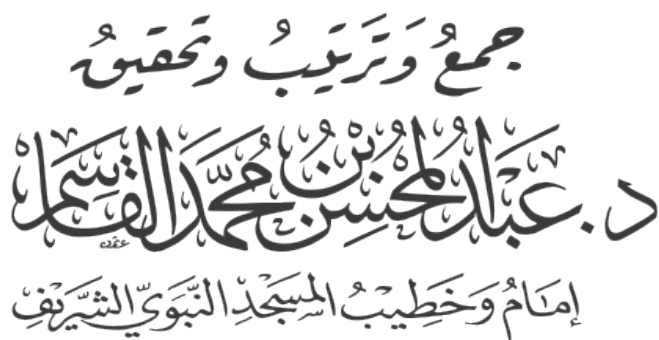 جمعُ وَتَرَتيبُ وتحقيقُ
د. عَبدُ المُحْسِن بْنُ مُحَمَّد القَاسِم
إمَامُ وَخَطِيبُ المَسْجِدِ النَّبَوَيِّ الشَّرِيفِ